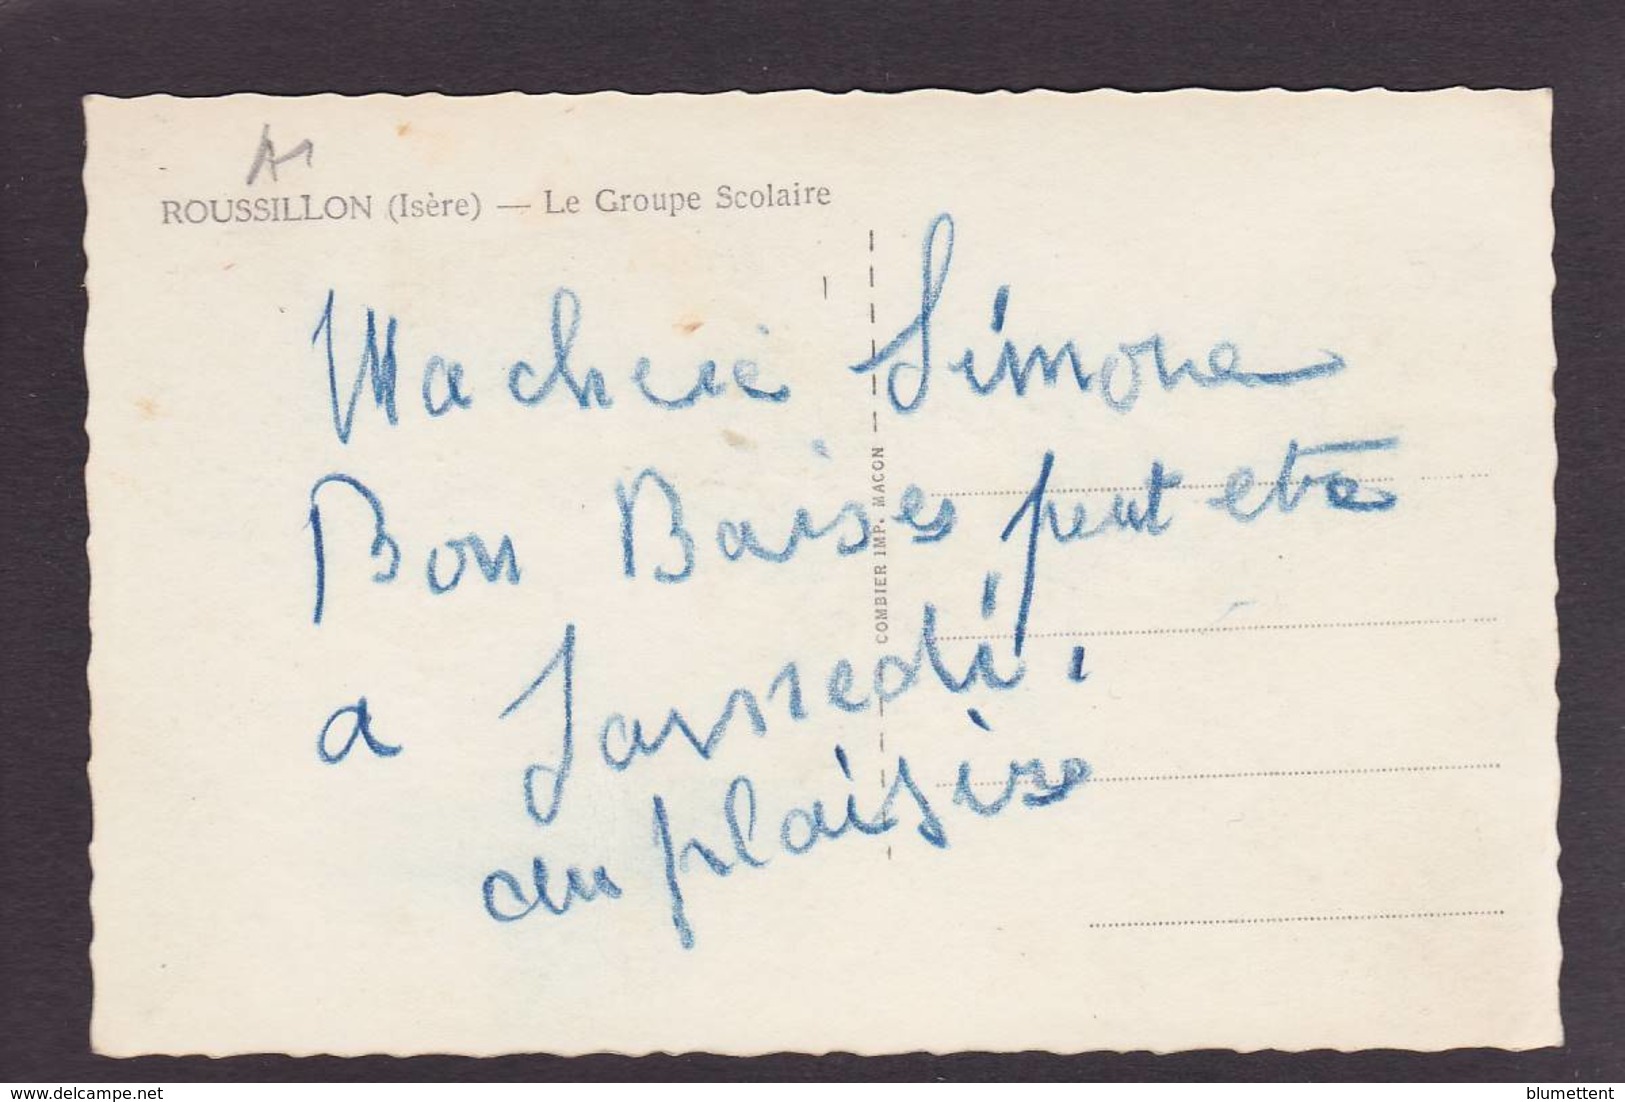 A1
ROUSSILLON (Isère) — Le Groupe Scolaire
Ma cherie Simone
Bon Baises peut etre
a Samedi.
au plaisire
COMBIER IMP. MACON
blumettent